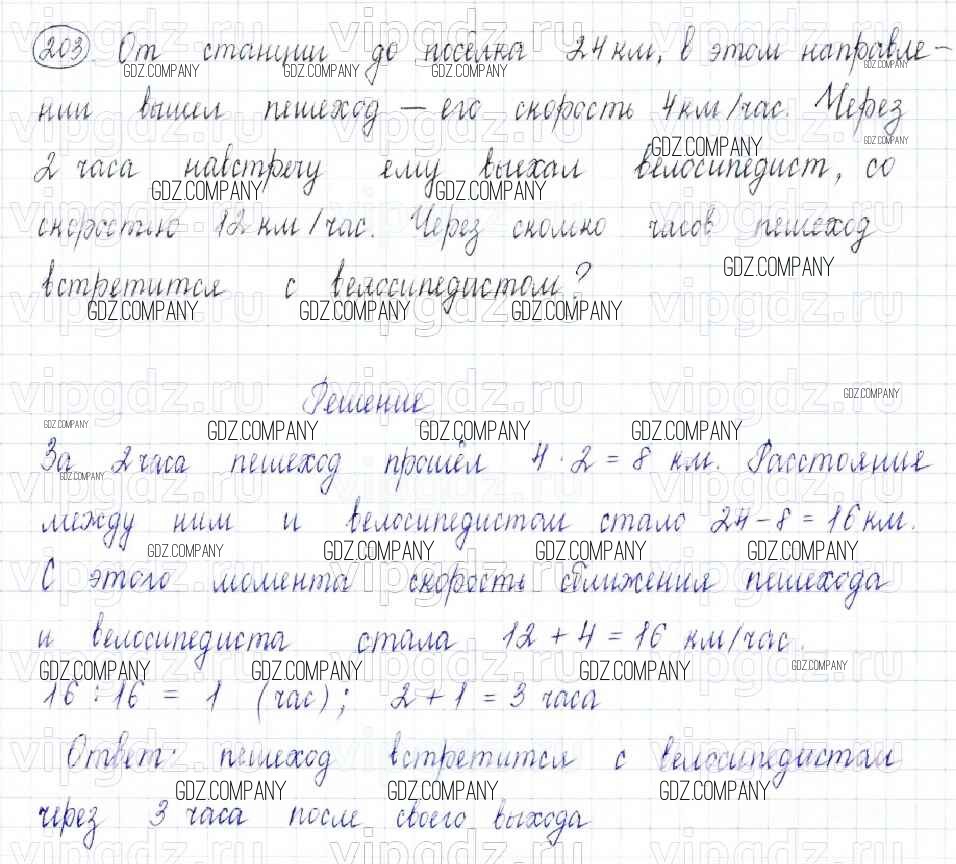 203 От станции до посёлка 24 км, в этом направле-
нии вышел пешеход — его скорость 4 км/час. Через
2 часа навстречу ему выехал велосипедист, со
скоростью 12 км/час. Через сколько часов пешеход
встретится с велосипедистом?
Решение
За 2 часа пешеход прошёл 4 · 2 = 8 км. Расстояние
между ним и велосипедистом стало 24 - 8 = 16 км.
С этого момента скорость сближения пешехода
и велосипедиста стала 12 + 4 = 16 км/час.
16 : 16 = 1 (час); 2 + 1 = 3 часа
Ответ: пешеход встретится с велосипедистом
через 3 часа после своего выхода